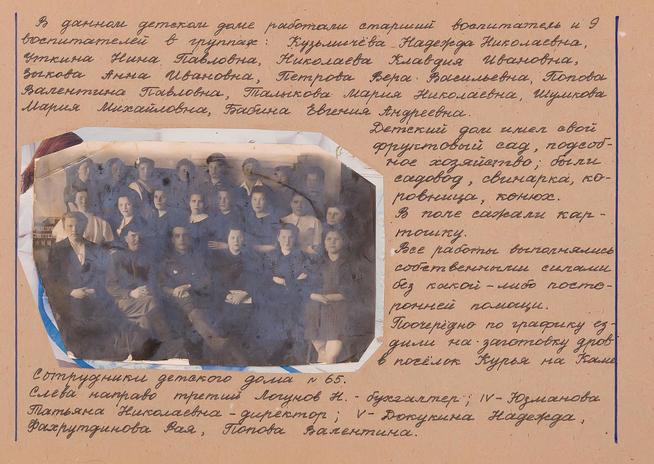 В данном детском доме работали старший воспитатель и 9
воспитателей в группах: Кузьмичёва Надежда Николаевна,
Уткина Нина Павловна, Николаева Клавдия Ивановна,
Зыкова Анна Ивановна, Петрова Вера Васильевна, Попова
Валентина Павловна, Талыкова Мария Николаевна, Шумкова
Мария Михайловна, Бабина Евгения Андреевна.
Детский дом имел свой
фруктовый сад, подсоб-
ное хозяйство; были
садовод, свинарка, ко-
ровница, конюх.
В поле сажали кар-
тошку.
Все работы выполнялись
собственными силами
без какой-либо посто-
ронней помощи.
Поочерёдно по графику ез-
дили на заготовку дров
в посёлок Курья на Каме
Сотрудники детского дома № 65.
Слева направо третий Логунов Н. - бухгалтер; IV - Юзманова
Татьяна Николаевна - директор; V - Докукина Надежда,
Фахрутдинова Рая, Попова Валентина.